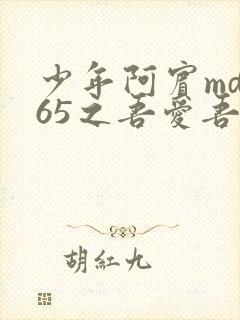 少年阿賓md
65之吾愛吾
胡紅九